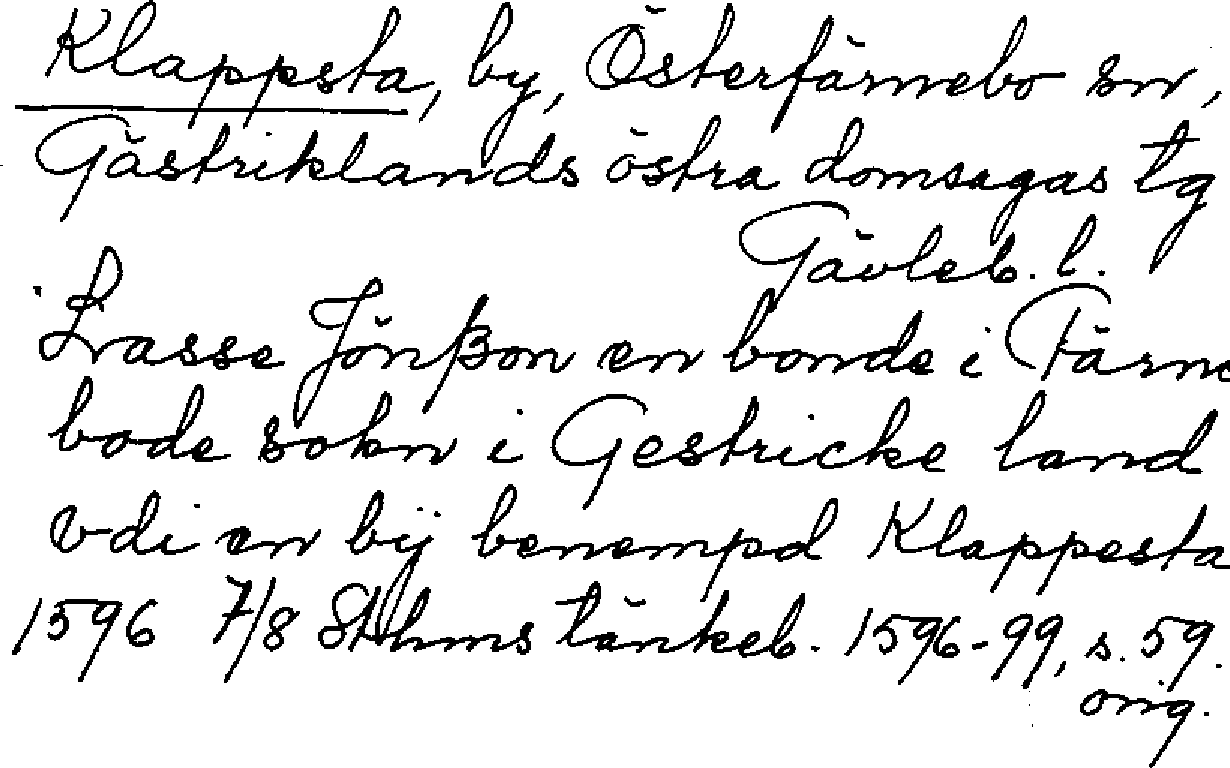 Klappsta, by, Österfärnebo sn,
Gästriklands östra domsagas tg
Gävleb. l.
Lasse Jönßon en bonde i Färne
bode sokn i Gestricke land
vdi en bÿ benempd Klappesta
1596 7/8 Sthms tänkeb. 1596-99, s. 59.
orig.